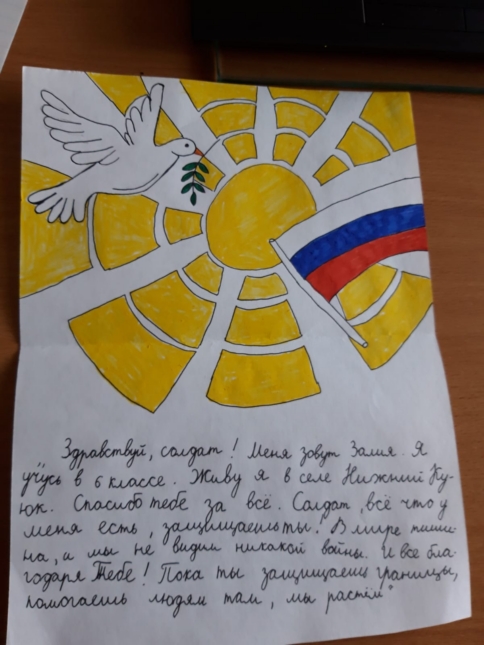 Здравствуй, солдат! Меня зовут Залия. Я
учусь в 6 классе. Живу я в селе Нижний Ку-
юк. Спасибо тебе за всё. Солдат, всё что у
меня есть, защищаешь ты! В мире тиши-
на, и мы не видим никакой войны. И все бла-
годаря Тебе! Пока ты защищаешь границы,
помогаешь людям там, мы растём"